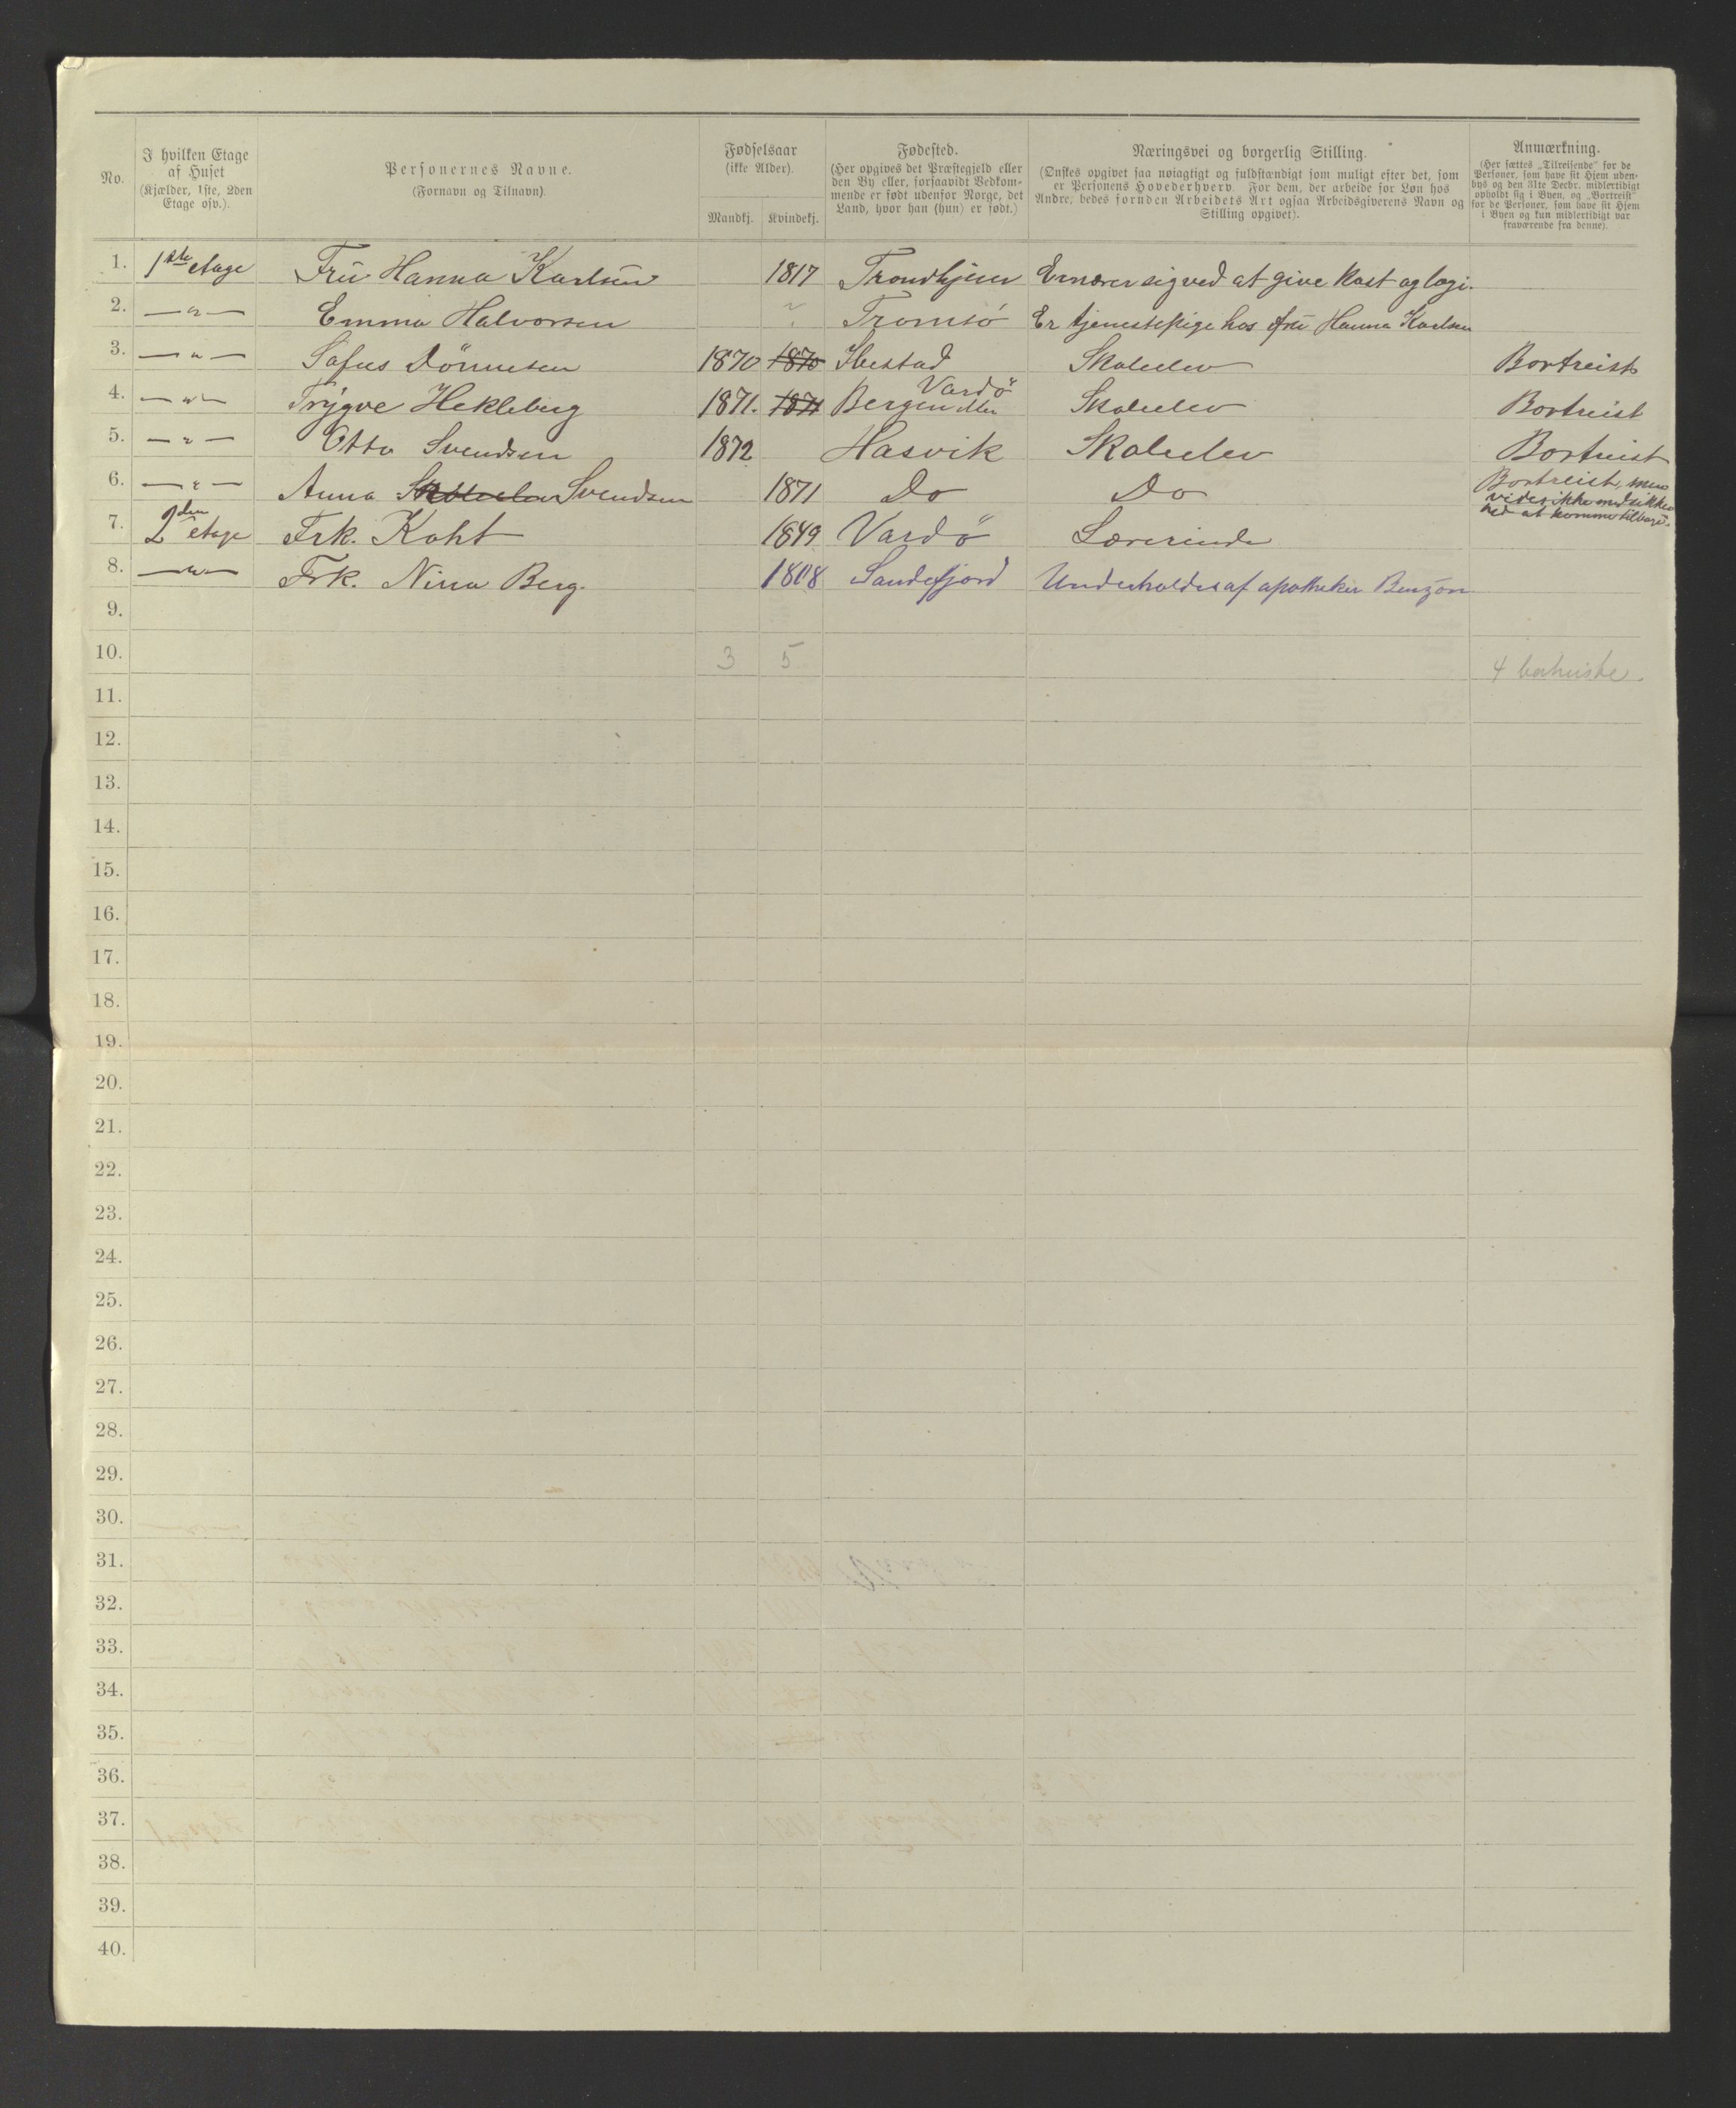 No.
I hvilken Etage
af Huset
(Kjælder, 1ste, 2den
Etage osv.).
Personernes Navne.
(Fornavn og Tilnavn).
Fødselsaar
(ikke Alder).
Mandkj. Kvindekj.
Fødested.
(Her opgives det Præstegjeld eller
den By eller, forsaavidt Vedkom-
mende er født udenfor Norge, det
Land, hvor han (hun) er født.)
Næringsvei og borgerlig Stilling.
(Ønskes opgivet saa nøiagtigt og fuldstændigt som muligt efter det, som
er Personens Hovederhverv. For dem, der arbeide for Løn hos
Andre, bedes fornden Arbeidets Art ogsaa Arbeidsgiverens Navn og
Stilling opgivet).
Anmærkning.
(Her sættes „Tilreisende" for de
Personer, som have sit Hjem uden-
bys og den 31te Decbr. midlertidigt
opholdt sig i Byen, og „Bortreist"
for de Personer, som have sit Hjem
i Byen og kun midlertidigt var
fraværende fra denne).
1. 1ste etage Fru Hanna Karlsen 1817 Trondhjem Ernærer sig ved at give kost og logi.
2. — " — Emma Halvorsen ? Tromsö Er tjenestepige hos fru Hanna Karlsen
3. — " — Sofus Dönnesen 1870 1870 Ibestad Skoleelev Bortreist
4. — " — Trygve Hekleberg 1871. 1871 Bergen eller Vardö Skoleelev Bortreist
5. — " — Otto Svendsen 1872 Hasvik Skoleelev Bortreist
6. — " — Anna Skoleelev Svendsen 1871 Do Do Bortreist, men
vides ikke med sikker
hed at komme tilbage.
7. 2den etage Frk. Koht 1849 Vardö Lærerinde
8. — " — Frk. Nina Berg. 1808 Sandefjord Underholdes af apotheker Benzon
9.
10. 3 5 4 bortreiste.
11.
12.
13.
14.
15.
16.
17.
18.
19.
20.
21.
22.
23.
24.
25.
26.
27.
28.
29.
30.
31.
32.
33.
34.
35.
36.
37.
38.
39.
40.